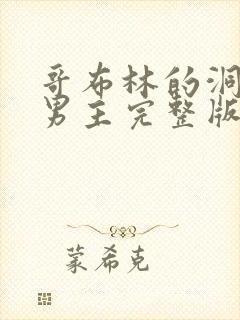 哥布林的洞
男主完整版
蒙希克